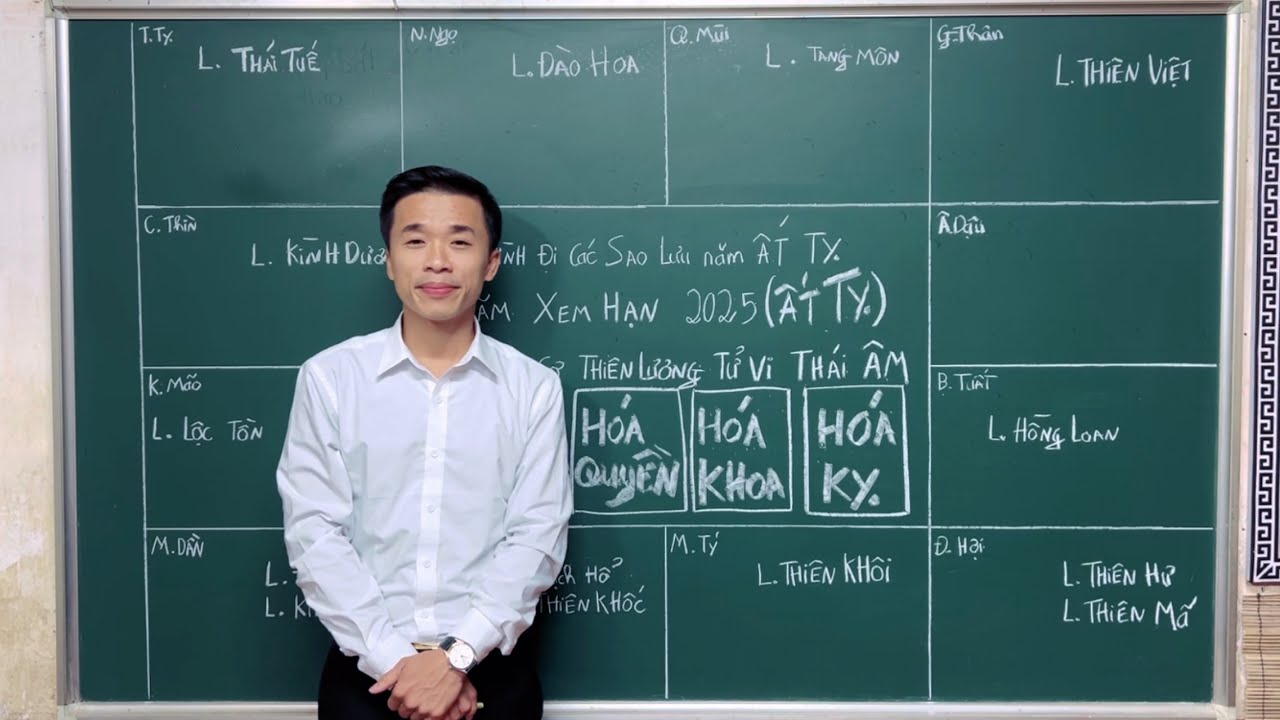 T.Tỵ.
L. THÁI TUẾ
N.Ngọ
L. ĐÀO HOA
Q. Mùi
L. TANG MÔN
G.Thân
L. THIÊN VIỆT
C. Thìn
L. KÌNH DƯƠ
ÌNH ĐỊ CÁC SAO LƯU năm ẤT TỴ.
ĂM XEM HẠN 2025 (ẤT TỴ.)
THIÊN LƯƠNG TỬ VI THÁI ÂM
HÓA QUYỀN
HÓA KHOA
HÓA KỴ.
Ấ.Dậu
K. Mão
L. LỘC TỒN
B. TUẤT
L. HỒNG LOAN
M. DẦN
L.
L. K
ẠCH HỔ
THIÊN KHỐC
M. TÝ
L. THIÊN KHÔI
Đ. Hợi
L. THIÊN HƯ
L. THIÊN MÃ